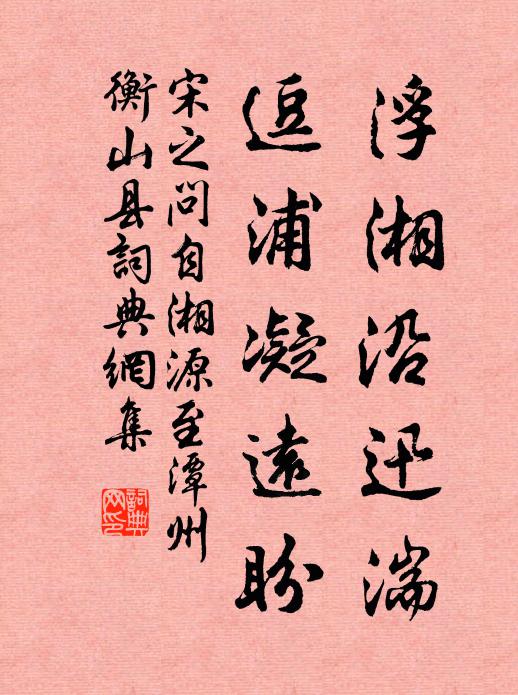 浮湘沿迅湍
逗浦凝遠盼
宋之问自湘源至潭州
衡山县詞典網集
詞典网印